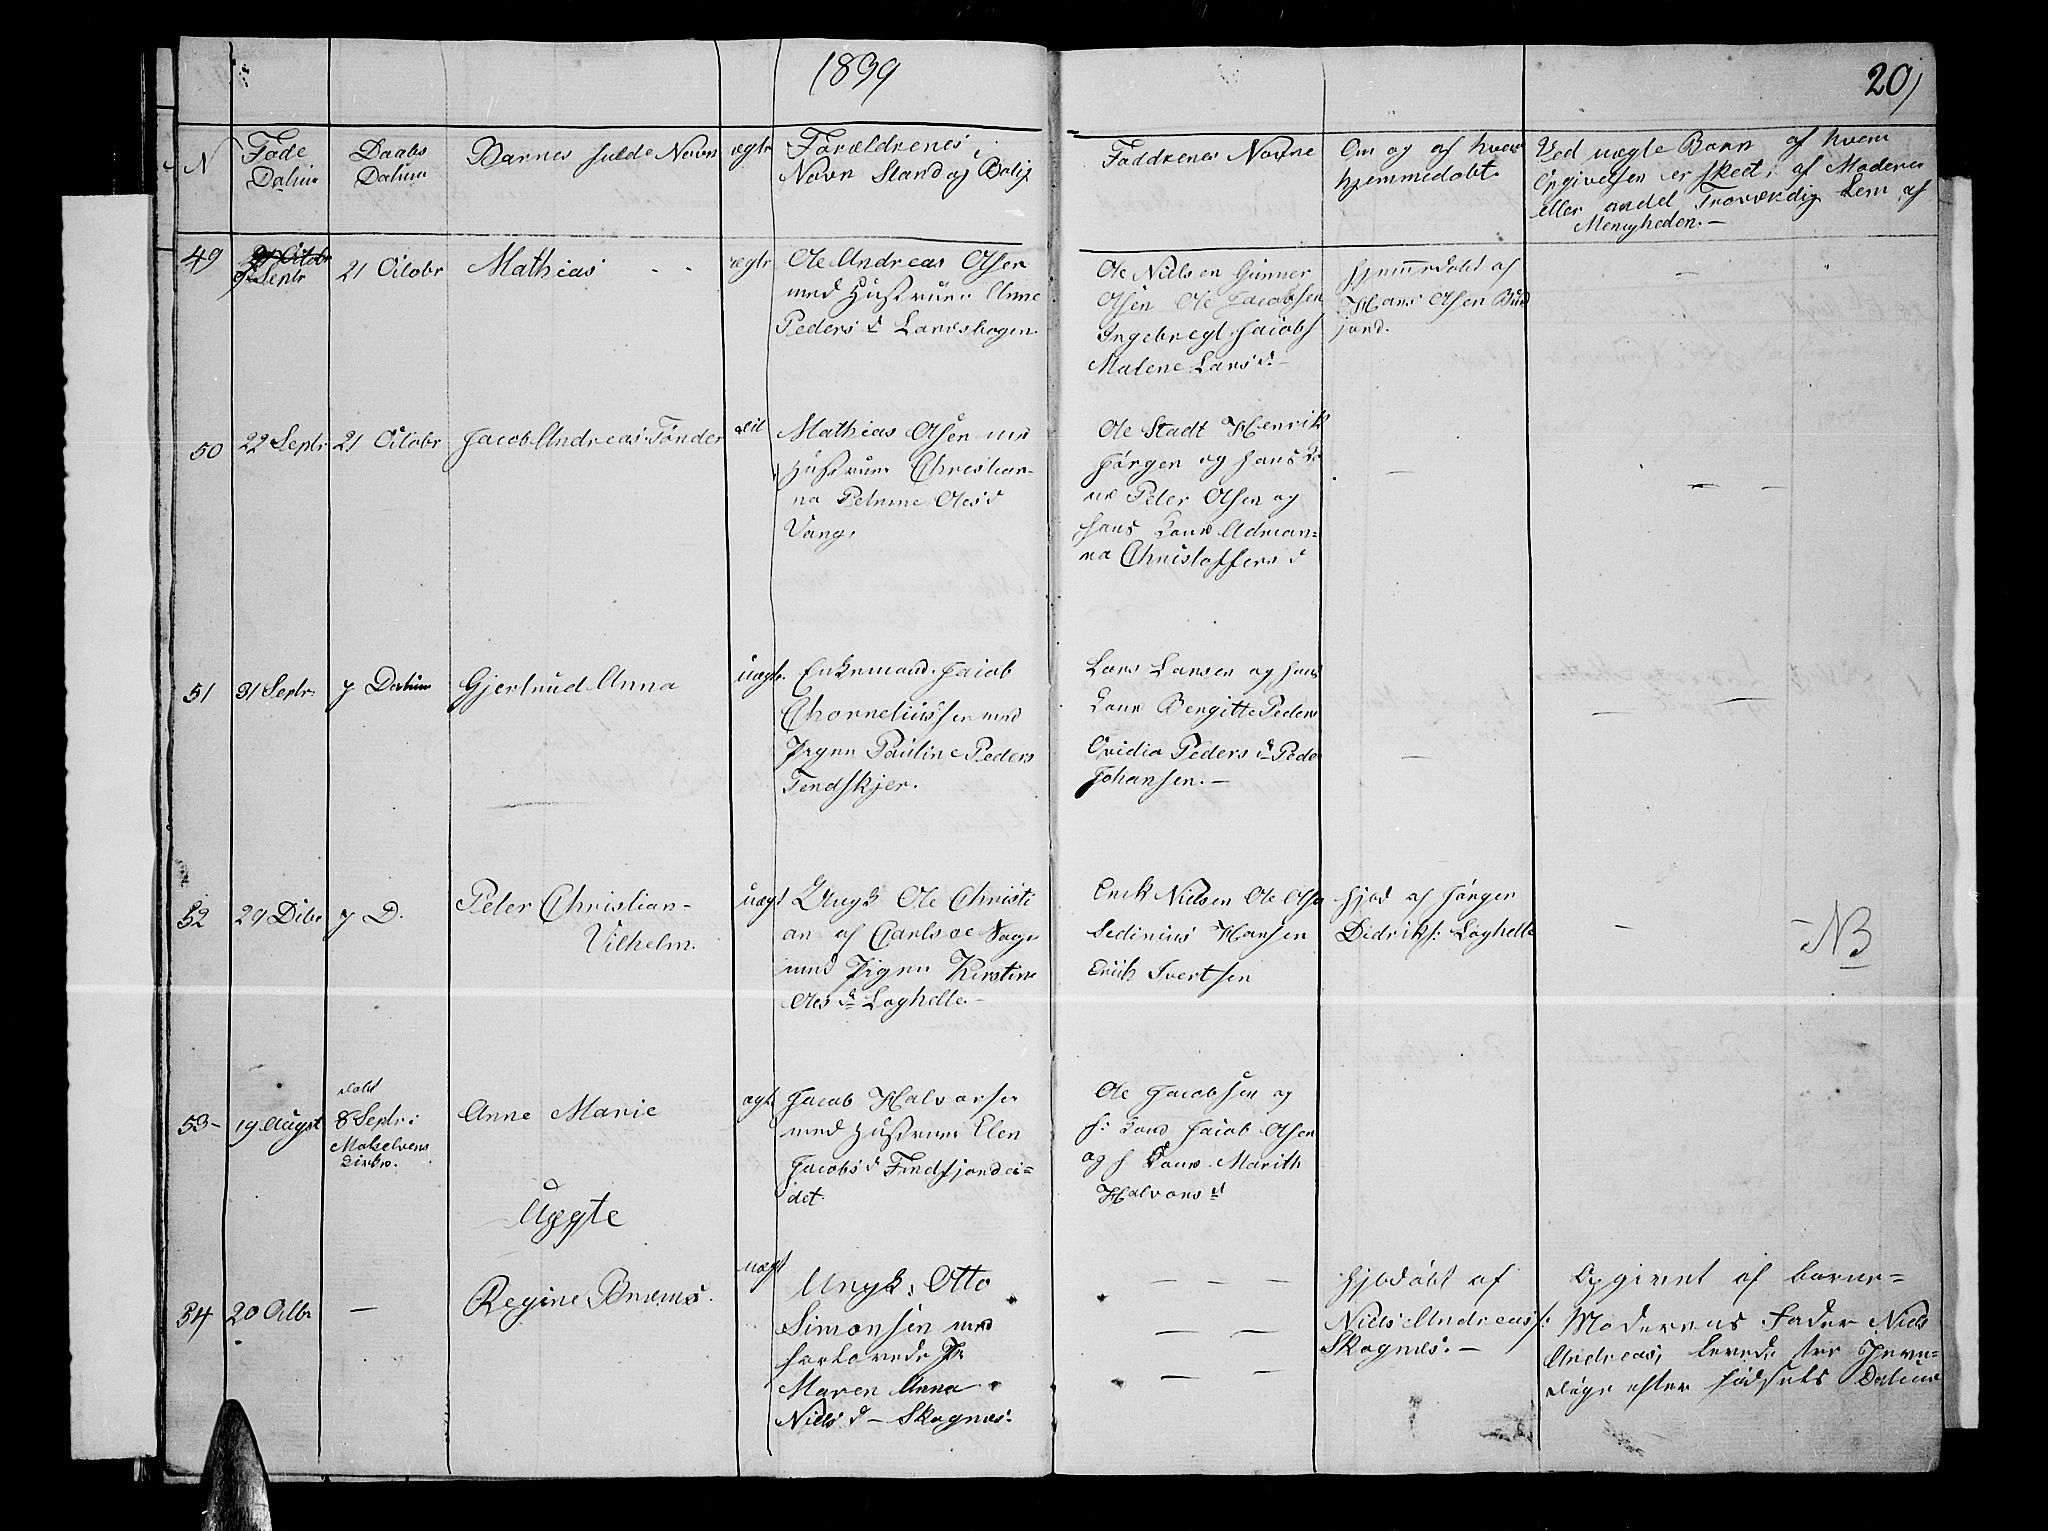 1839
20
N
Føde
Datum
Daabs
Datum
Barnes fulde Navn
ægte
Forældrenes
Navn Stand og Bolig
Faddrenes Navne
Om og af hvem
hjemmedøbt.
Ved uægte Børn af hvem
Opgivelsen er skedt, af Moderen
eller andet Troværdig Lem af
Menigheden.—
49
Septr
21 Octobr
Mathias
ægte
Ole Andreas Olsen
med Hustrue Anne
Peders d
Ole Nielsen Gunner
Olsen Ole Jacobsen
Ingebregt Jacobs
Malene Lars d.—
Hjemmedøbt af
Hans Olsen
jord.
50
22 Septr
21 Octobr
Jacob Andreas Tønder
Mathias Olsen med
Hustrue Christian-
na Petrine Olesd
Vang.
Ole Stadt Henrik
Jørgen og hans Ko-
ne Peter Olsen og
hans Kone Adrian-
na Christoffers d
—
— —
51
31 Septr.
7 Datum
Gjertrud Anna
uægte.
Enkemand Jacob
Chorneliussen med
Pigen Pauline Peders
Tendskjer.
Lars Larsen og hans
Kone Bergitte Peders
Ovidia Peders d Peder
Johansen.—
—
— —
52
29
7 D.
Peter Christian-
Vilhelm.
uægt
Ungk Ole Christi
an af Carlsøe
med Pigen Kirstine
Oles d Loghelle.—
Erik Nielsen Ole Olsen
Sedinius Hansen
Erich Ivertsen
hjdø af Jørgen
Didriks: Loghelle
—
NB
53-
19 August
døbt
8 Septr:
Malelvens
Kirke.
Anne Marie
ægte
Jacob Halvorsen
med Hustrue Elen
Jacobs d Finfjordei=
det.
Ole Jacobsen og
h: Kone Jacob Olsen
og h Kone Marith
Halvors d
Uægte
54
20
—
Regine
uægt
Ungk: Otto
Simonsen med
forlovede P:
Maren Anna
Niels d — Skognes:
— — —
— —
— —
Hjedøbt af
Niels Andreas:
Skognes.—
Opgivet af barne=
Moderens Fader Niels
Andreas,
efter fødsels Datum